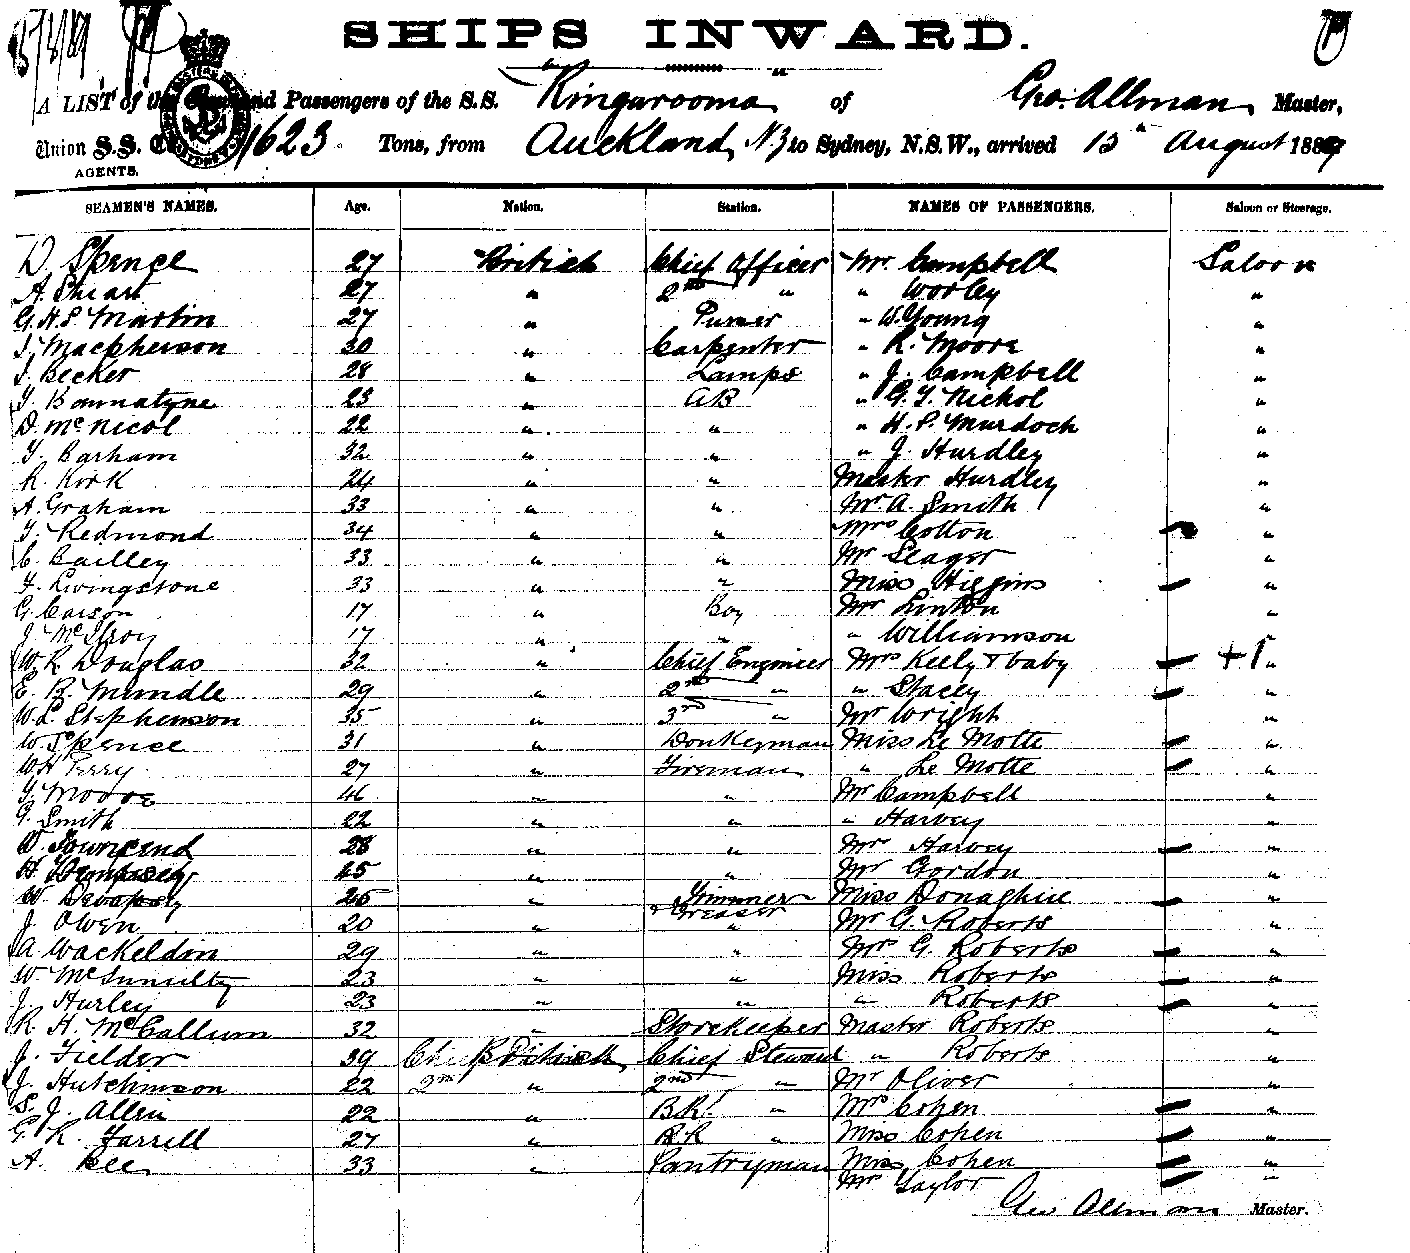 SHIPS INWARD.
A LIST of the Crew and Passengers of the S.S. Ringarooma of Geo. Allman, Master,
Union S.S. Co. 1623 Tons, from Auckland, NZ to Sydney, N.S.W., arrived 15th August 1889
AGENTS.
SEAMEN'S NAMES. Age. Nation. Station. NAMES OF PASSENGERS. Saloon or Steerage.
D. Spence 27 British Chief Officer Mr. Campbell Saloon
A. Sheart 27 " 2nd " " Worley "
G. H. S. Martin 27 " Purser " W. Young "
J. Macpherson 30 " Carpenter " R. Moore "
J. Becker 28 " Lamps " J. Campbell "
23 " AB " G. T. Nichol "
D. McNicol 22 " " " H. S. Murdoch "
T. Barham 32 " " " J. Hurdley "
R. Kirk 24 " " Master Hurdley "
A. Graham 33 " " Mr A. Smith "
T. Redmond 34 " " Mrs Cotton "
C. Bailley 33 " " Mr Seager "
F. Livingstone 33 " " Miss Higgins "
G. Carson 17 " Boy Mr Linton "
J. McIlroy 17 " " " Williamson "
W. R. Douglas 32 " Chief Engineer Mrs Keely & baby +1 "
E. R. Mundle 29 " 2nd " " Stacey "
W. L. Stephenson 35 " 3rd " Mr Wright "
W. Spence 31 " Donkeyman Miss Le Motte "
W H Perry 27 " Fireman " Le Motte "
T. Moore 46 " " Mr Campbell "
G. Smith 22 " " " Harvey "
W. Townsend 28 " " Mrs Harvey "
H. 25 " " Mr Gordon "
W. 25 " Trimmer Miss Donaghue "
& Greaser
J. Owen 20 " " Mr G. Roberts "
A Wackeldon 29 " " Mrs G. Roberts "
W. 23 " " Miss Roberts "
J. Hurley 23 " " " Roberts "
R. H. McCallum 32 " Storekeeper Master Roberts "
J. Fielder 39 British Chief Steward " Roberts "
J. Hutchinson 22 2nd " 2nd " Mr Oliver "
S. J. Allen 22 " B.R. " Mrs Cohen "
G. R. Farrell 27 " BR " Miss Cohen "
A. Bee 33 " Pantryman Miss Cohen "
Mr Taylor "
Geo Allman Master.